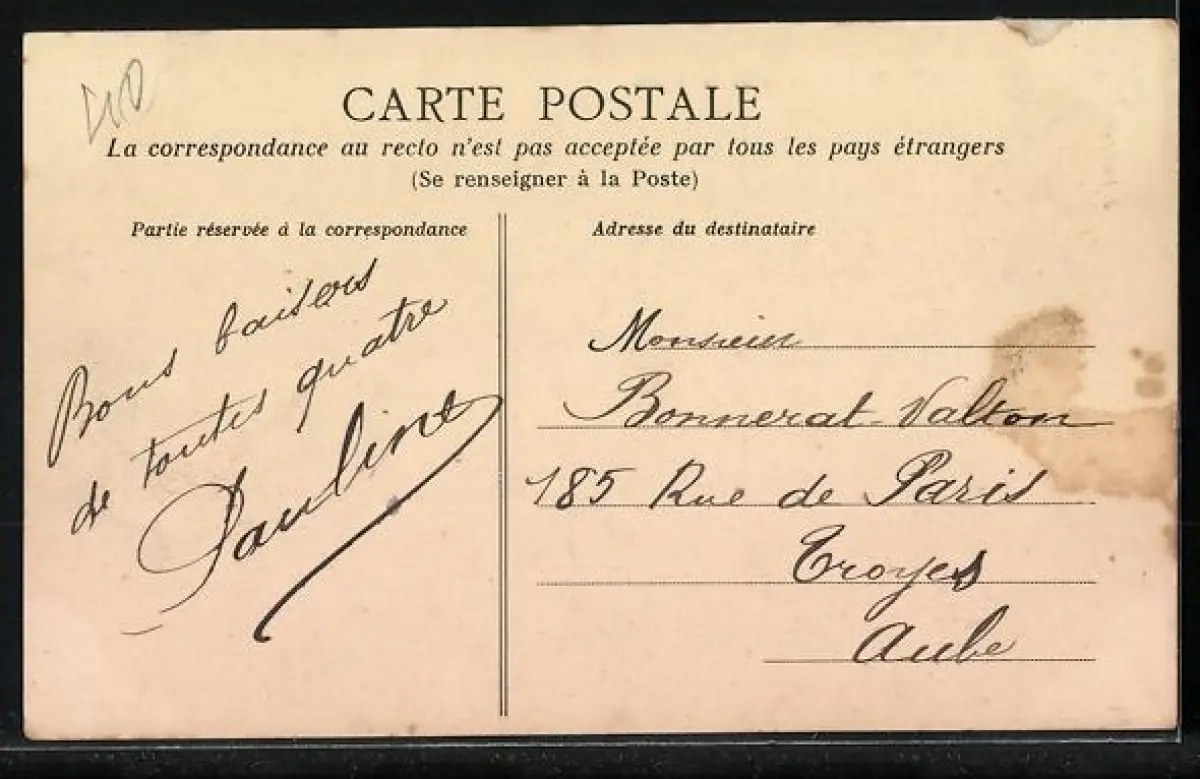 40
CARTE POSTALE
La correspondance au recto n'est pas acceptée par tous les pays étrangers
(Se renseigner à la Poste)
Partie réservée à la correspondance
Bons baisers
de toutes quatre
Pauline
Adresse du destinataire
Monsieur
Bonnerat-Valton
185 Rue de Paris
Troyes
Aube